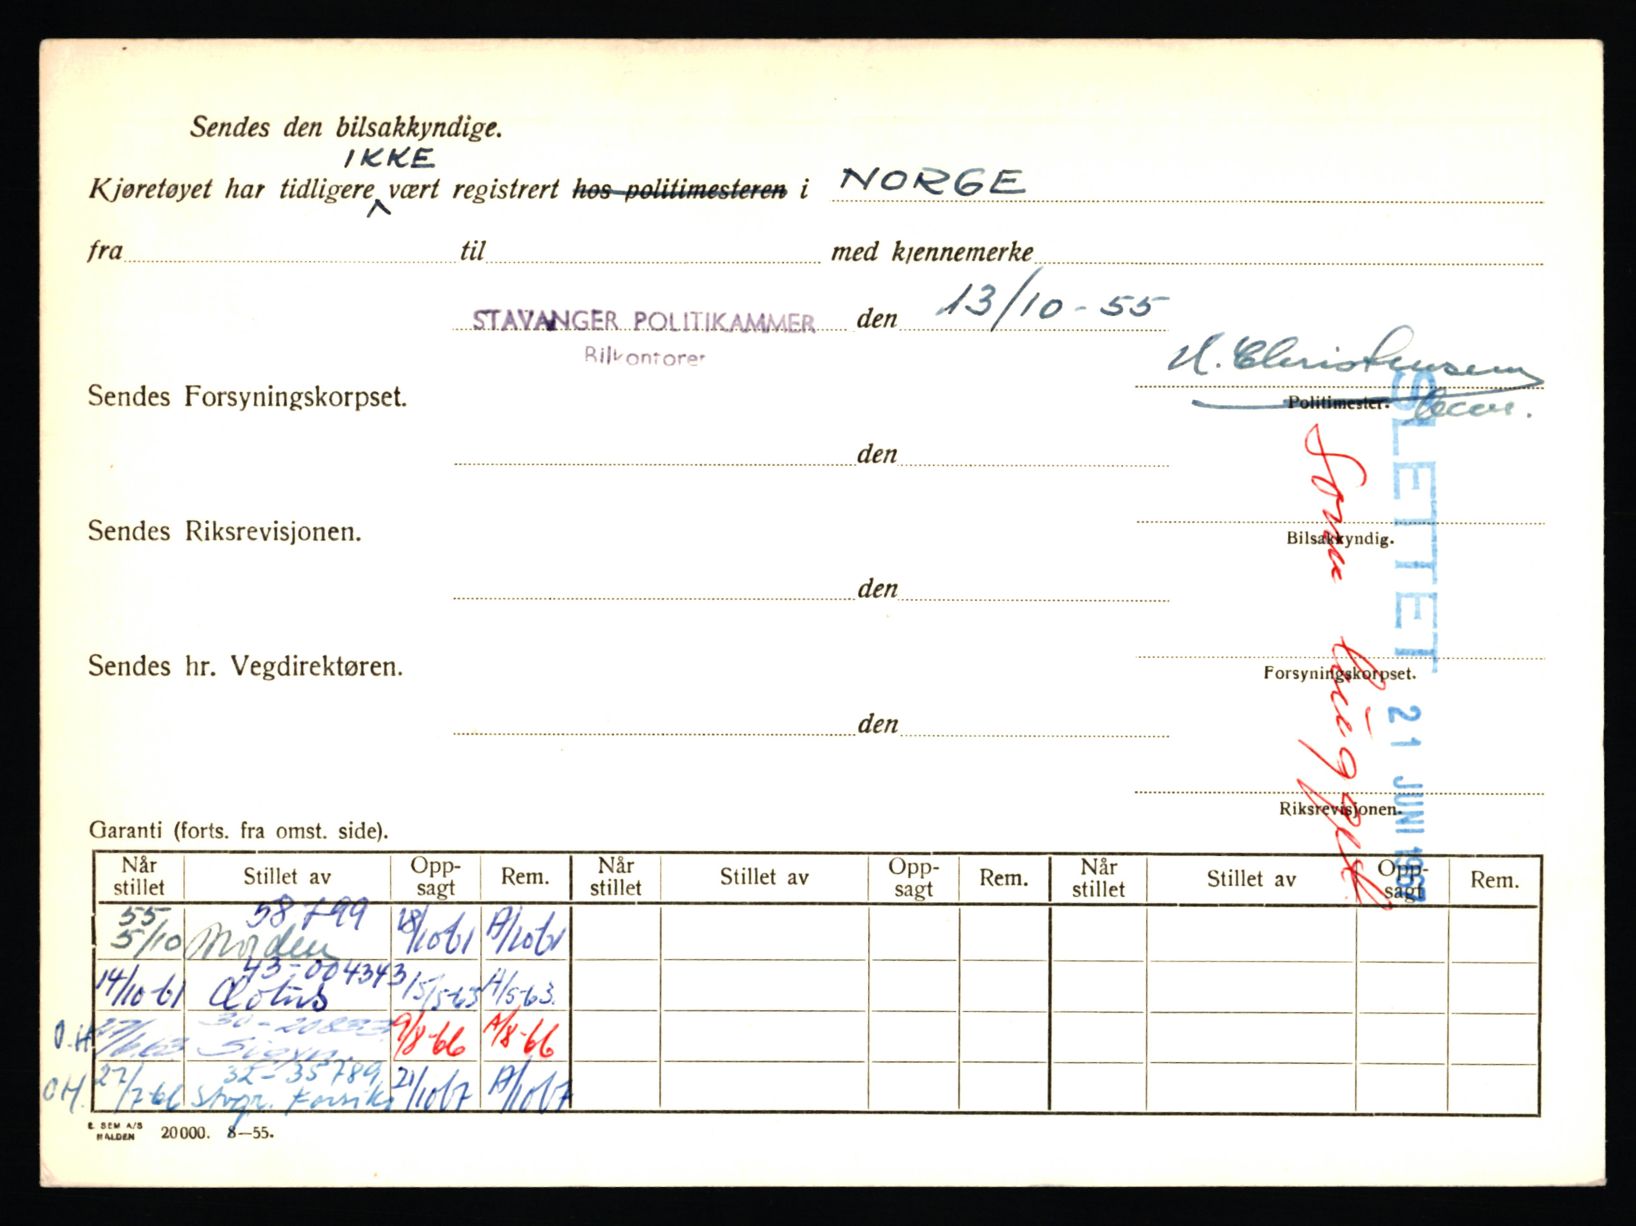 Sendes den bilsakkyndige.
IKKE
Kjøretøyet har tidligere ^ vært registrert hos politimesteren i NORGE
fra til med kjennemerke
STAVANGER POLITIKAMMER den 13/10-55
Bilkontoret
H. Christensen
Sendes Forsyningskorpset.
Politimester.
den
Sendes Riksrevisjonen.
Bilsakkyndig.
den
Sendes hr. Vegdirektøren.
Forsyningskorpset.
den
Riksrevisjonen.
SLETTET 21 JUNI 1968
Som
Garanti (forts. fra omst. side).
Når stillet Stillet av Opp-sagt Rem. Når stillet Stillet av Opp-sagt Rem. Når stillet Stillet av Opp-sagt Rem.
55 58799
5/10 Norden 18/10 61 A/10 61
43-004343
14/10-61 Lotus 15/5-63 A/5-63.
O.H. 27/6.63 Sigyn 9/8-66 A/8-66
32-35789
O.H. 27/7-66 Stvgr. Forsikr 21/10 67 A/10 67
E. SEM A/S
HALDEN 20000. 8—55.